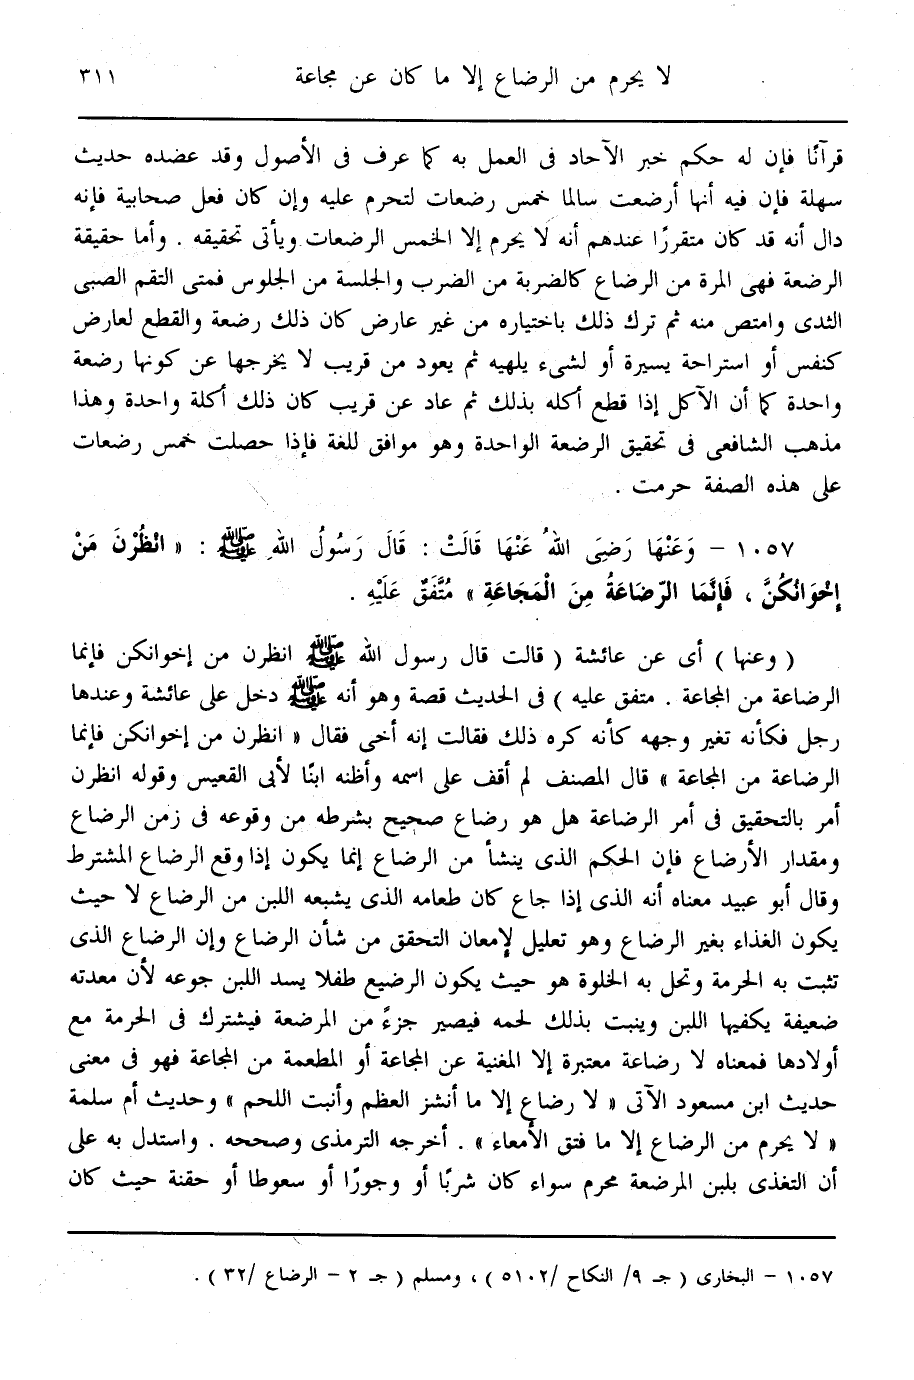 لا يحرم من الرضاع إلا ما كان عن مجاعة ٣١١
قرآنًا فإن له حكم خبر الآحاد فى العمل به كما عرف فى الأصول وقد عضده حديث
سهلة فإن فيه أنها أرضعت سالما خمس رضعات لتحرم عليه وإن كان فعل صحابية فإنه
دال أنه قد كان متقررًا عندهم أنه لا يحرم إلا الخمس الرضعات ويأتى تحقيقه . وأما حقيقة
الرضعة فهى المرة من الرضاع كالضربة من الضرب والجلسة من الجلوس فمتى التقم الصبى
الثدى وامتص منه ثم ترك ذلك باختياره من غير عارض كان ذلك رضعة والقطع لعارض
كنفس أو استراحة يسيرة أو لشىء يلهيه ثم يعود من قريب لا يخرجها عن كونها رضعة
واحدة كما أن الآكل إذا قطع أكله بذلك ثم عاد عن قريب كان ذلك أكلة واحدة وهذا
مذهب الشافعى فى تحقيق الرضعة الواحدة وهو موافق للغة فإذا حصلت خمس رضعات
على هذه الصفة حرمت .
١٠٥٧ – وَعَنْهَا رَضِىَ اللهُ عَنْهَا قَالَتْ : قَالَ رَسُولُ اللهِ ﷺ : « انْظُرْنَ مَنْ
إِخْوَانُكُنَّ ، فَإِنَّمَا الرَّضَاعَةُ مِنَ الْمَجَاعَةِ » مُتَّفَقٌ عَلَيْهِ .
( وعنها ) أى عن عائشة ( قالت قال رسول الله ﷺ انظرن من إخوانكن فإنما
الرضاعة من المجاعة . متفق عليه ) فى الحديث قصة وهو أنه ﷺ دخل على عائشة وعندها
رجل فكأنه تغير وجهه كأنه كره ذلك فقالت إنه أخى فقال « انظرن من إخوانكن فإنما
الرضاعة من المجاعة » قال المصنف لم أقف على اسمه وأظنه ابنًا لأبى القعيس وقوله انظرن
أمر بالتحقيق فى أمر الرضاعة هل هو رضاع صحيح بشرطه من وقوعه فى زمن الرضاع
ومقدار الأرضاع فإن الحكم الذى ينشأ من الرضاع إنما يكون إذا وقع الرضاع المشترط
وقال أبو عبيد معناه أنه الذى إذا جاع كان طعامه الذى يشبعه اللبن من الرضاع لا حيث
يكون الغذاء بغير الرضاع وهو تعليل لإمعان التحقق من شأن الرضاع وإن الرضاع الذى
تثبت به الحرمة وتحل به الخلوة هو حيث يكون الرضيع طفلا يسد اللبن جوعه لأن معدته
ضعيفة يكفيها اللبن وينبت بذلك لحمه فيصير جزءً من المرضعة فيشترك فى الحرمة مع
أولادها فمعناه لا رضاعة معتبرة إلا المغنية عن المجاعة أو المطعمة من المجاعة فهو فى معنى
حديث ابن مسعود الآتى « لا رضاع إلا ما أنشز العظم وأنبت اللحم » وحديث أم سلمة
« لا يحرم من الرضاع إلا ما فتق الأمعاء » . أخرجه الترمذى وصححه . واستدل به على
أن التغذى بلبن المرضعة محرم سواء كان شربًا أو وجورًا أو سعوطا أو حقنة حيث كان
١٠٥٧ – البخارى ( جـ ٩/ النكاح /٥١٠٢ ) ، ومسلم ( جـ ٢ – الرضاع /٣٢ ) .